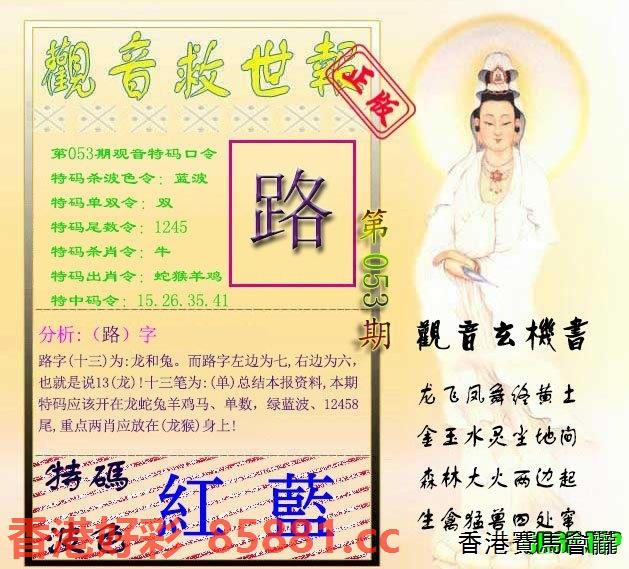 觀音救世報
正版
第053期观音特码口令
特码杀波色令：蓝波
特码单双令：双
特码尾数令：1245
特码杀肖令：牛
特码出肖令：蛇猴羊鸡
特中码令：15.26.35.41
路
第053期
分析:（路）字
路字(十三)为:龙和兔。而路字左边为七,右边为六,
也就是说13(龙)!十三笔为:(单)总结本报资料,本期
特码应该开在龙蛇兔羊鸡马、单数，绿蓝波、12458
尾,重点两肖应放在(龙猴)身上!
特碼
波色
紅 藍
香港好彩 85881.cc
觀音玄機書
龙飞凤舞经黄土
金玉水灵尘地间
森林大火两边起
生禽猛兽四处窜
香港賽馬會